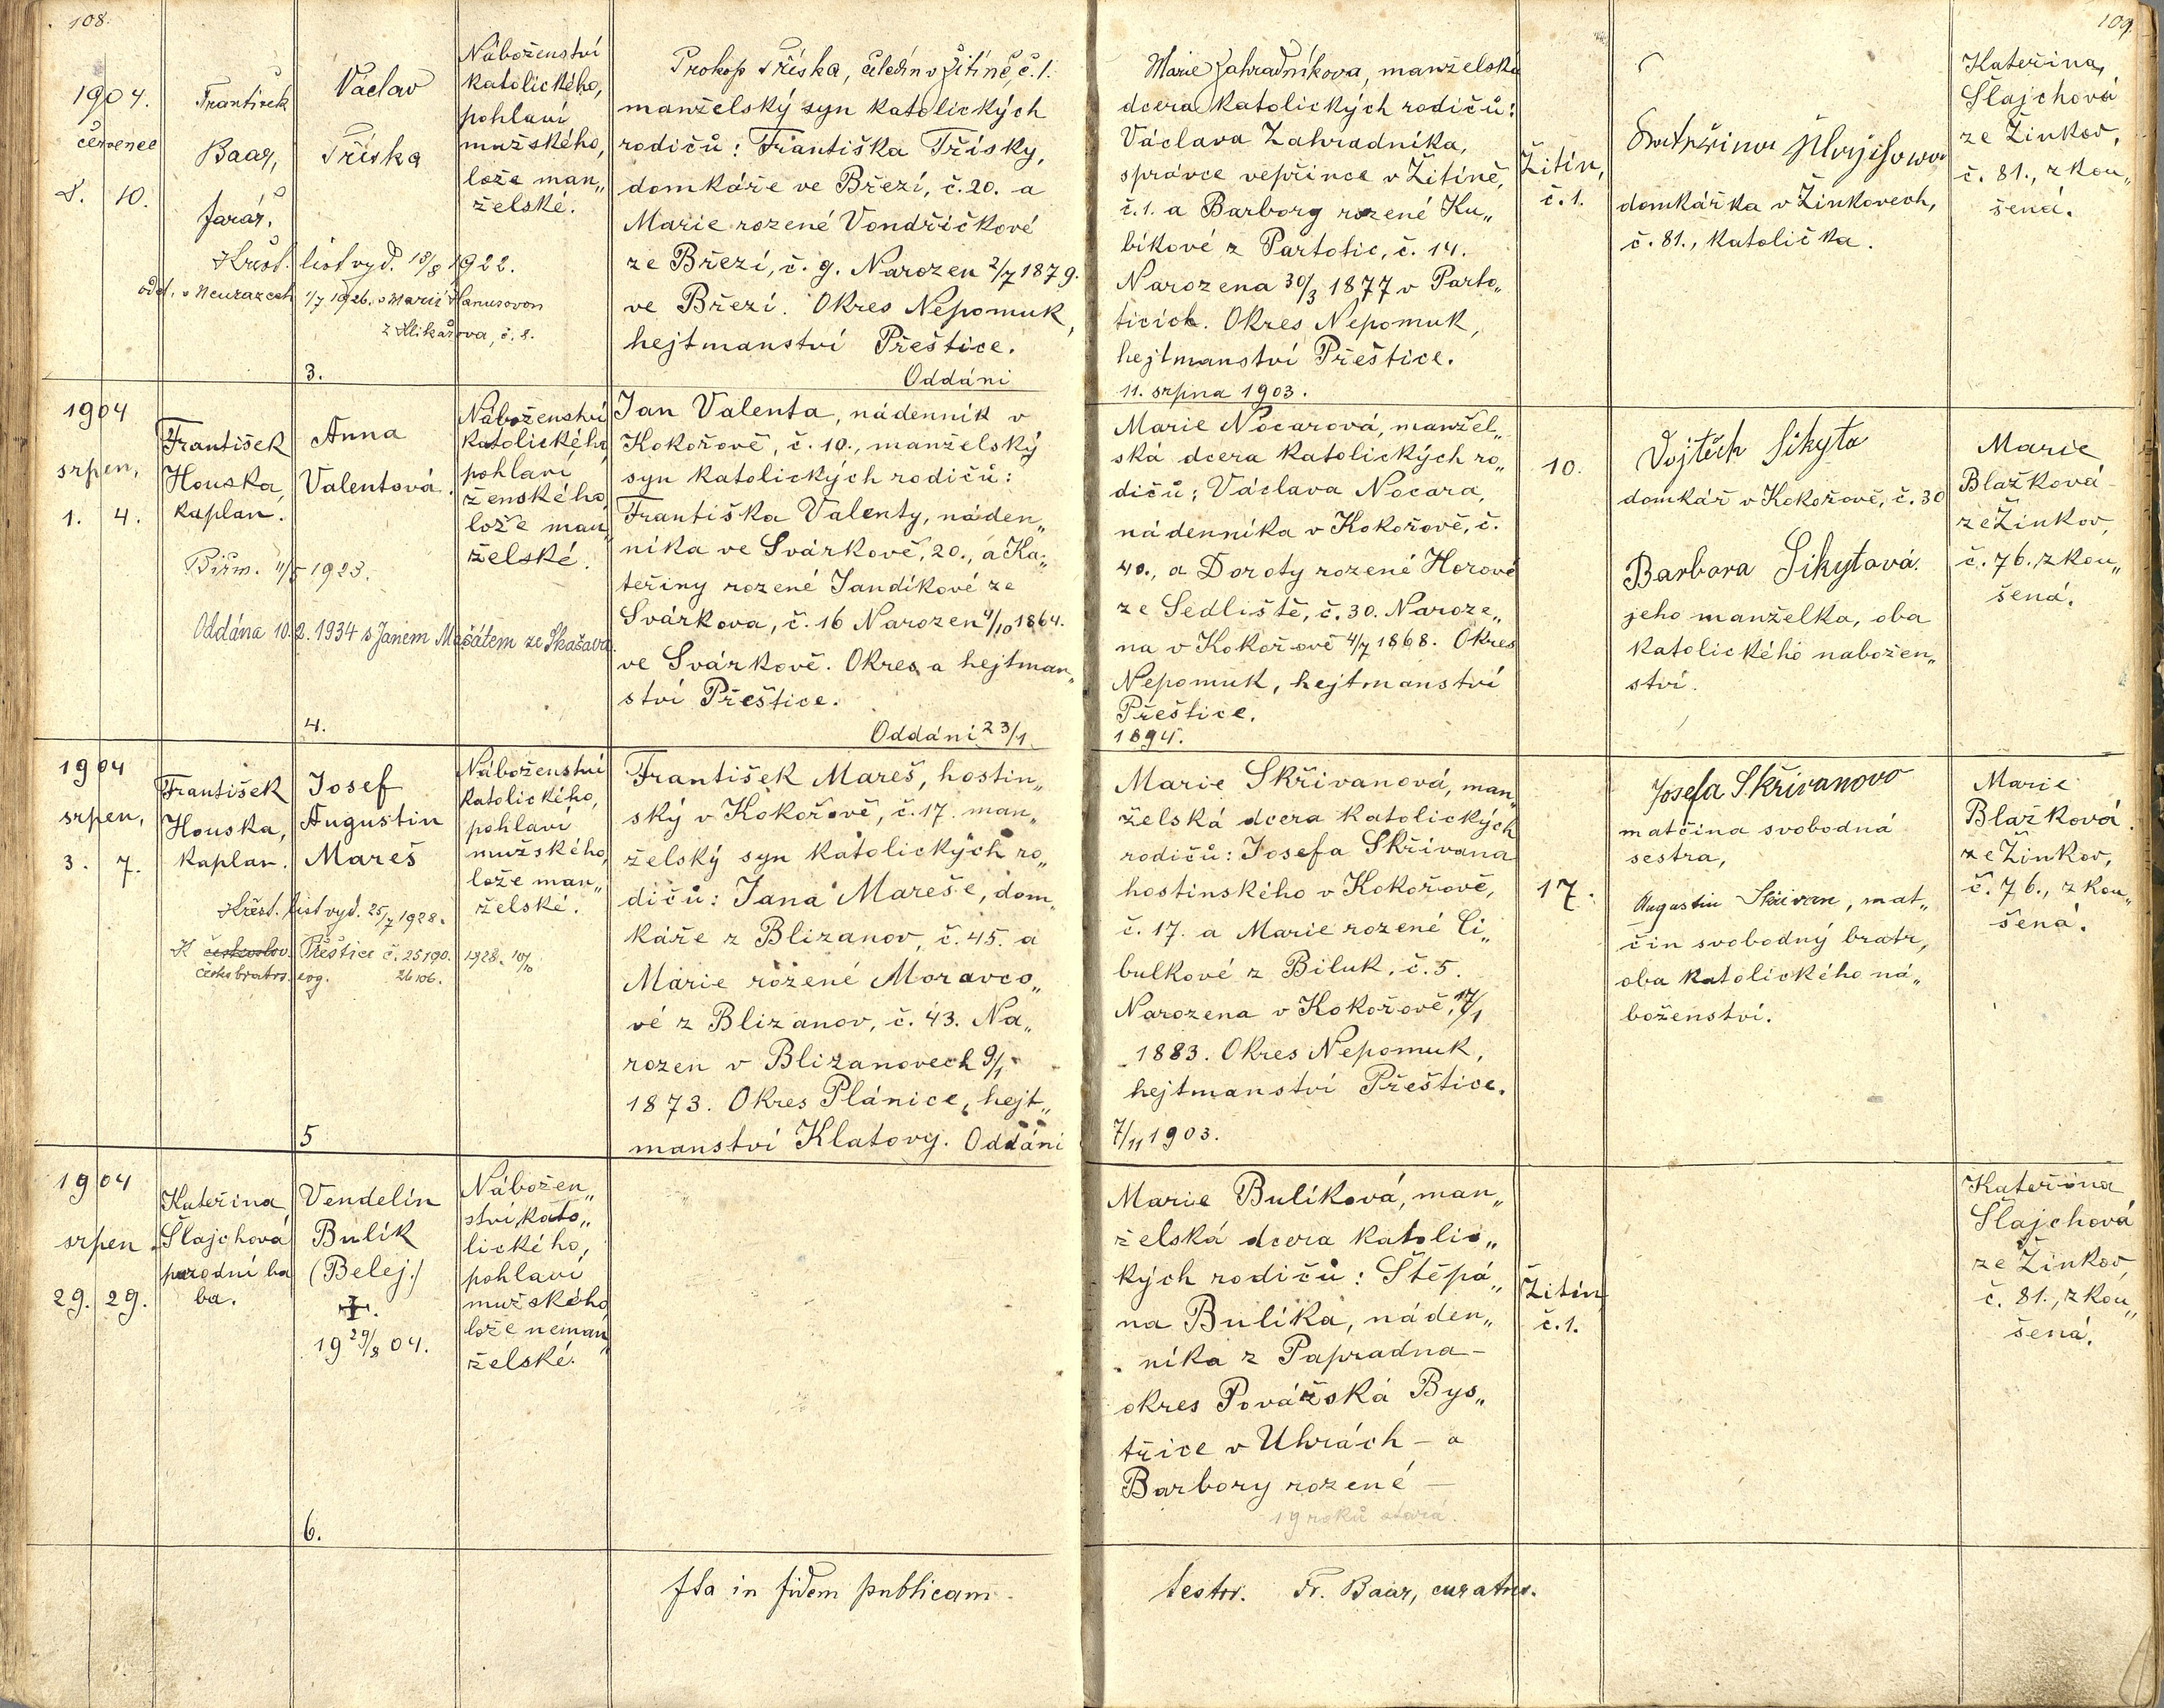 108.
109.
1904.
červenec
8. 10.
František
Baar,
farář.
Václav
Tříska
Náboženství
katolického,
pohlaví
mužského,
lože man„
želské.
Křest. list vyd. 18/8 1922.
odd. v Neurazech 1/7 1926. s Marií Hanusovou
z Klikařova, č. 8.
3.
Prokop Tříska, čeledín v Žitíně, č. 1.
manželský syn katolických
rodičů: Františka Třísky,
domkáře ve Březí, č. 20. a
Marie rozené Vondřičkové
ze Březí, č. 9. Narozen 2/7 1879.
ve Březí. Okres Nepomuk,
hejtmanství Přeštice.
Oddáni
Marie Zahradníkova, manželská
dcera katolických rodičů:
Václava Zahradníka,
správce vepřince v Žitíně,
č. 1. a Barbory rozené Ku„
bíkové z Partotic, č. 14.
Narozena 30/3 1877 v Parto„
ticích. Okres Nepomuk,
hejtmanství Přeštice.
11. srpna 1903.
Žitín,
č. 1.
Kateřina Šlajchowa
domkářka v Žinkovech,
č. 81., katolička.
Kateřina
Šlajchová
ze Žinkov,
č. 81., zkou„
šená.
1904
srpen,
1. 4.
František
Houska,
kaplan.
Anna
Valentová.
Náboženství
katolického,
pohlaví
ženského,
lože man„
želské.
Biřm. 11/5 1923.
Oddána 10.2.1934 s Janem Mašátem ze Skašova.
4.
Jan Valenta, nádenník v
Kokořově, č. 10., manželský
syn katolických rodičů:
Františka Valenty, náden„
níka ve Svárkově, 20., a Ka„
teřiny rozené Jandíkové ze
Svárkova, č. 16 Narozen 4/10 1864.
ve Svárkově. Okres a hejtman„
ství Přeštice.
Oddáni 23/1
Marie Nocarová, manžel„
ská dcera katolických ro„
dičů: Václava Nocara,
nádenníka v Kokořově, č.
40., a Doroty rozené Horové
ze Sedliště, č. 30. Naroze„
na v Kokořově 4/7 1868. Okres
Nepomuk, hejtmanství
Přeštice.
1894.
10.
Vojtěch Sikyta
domkář v Kokořově, č. 30
Barbora Sikytová.
jeho manželka, oba
katolického nabožen„
ství.
Marie
Blažková
ze Žinkov,
č. 76. zkou„
šená.
1904
srpen,
3. 7.
František
Houska,
kaplan.
Josef
Augustin
Mareš
Náboženství
katolického,
pohlaví
mužského,
lože man„
želské.
Křest. list vyd. 25/7 1928.
K českoslov. Přeštice č. 25190. 1928. 10/10
českobratrs. evg. 26106.
5
František Mareš, hostin„
ský v Kokořově, č. 17. man„
želský syn katolických ro„
dičů: Jana Mareše, dom„
káře z Blizanov, č. 45. a
Marie rozené Moravco„
vé z Blizanov, č. 43. Na„
rozen v Blizanovech 9/1
1873. Okres Plánice, hejt„
manství Klatovy. Oddáni
Marie Skřivanová, man„
želská dcera katolických
rodičů: Josefa Skřivana
hostinského v Kokořově,
č. 17. a Marie rozené Ci„
bulkové z Biluk, č. 5.
Narozena v Kokořově, 17/1
1883. Okres Nepomuk,
hejtmanství Přeštice.
7/11 1903.
17.
Josefa Skřivanova
matčina svobodná
sestra,
Augustin Skřivan, mat„
čin svobodný bratr,
oba katolického ná„
boženství.
Marie
Blažková
ze Žinkov,
č. 76., zkou„
šená.
1904
srpen
29. 29.
Kateřina
Šlajchová
porodní ba
ba.
Vendelín
Bulík
(Belej.)
✝.
19 29/8 04.
Nábožen„
ství kato„
lického,
pohlaví
mužského
lože neman„
želské.
6.
Marie Bulíková, man„
želská dcera katolic„
kých rodičů: Štěpá„
na Bulíka, náden„
níka z Papradna –
okres Považská Bys„
třice v Uhrách – a
Barbory rozené –
19 roků stará.
Žitín,
č. 1.
Kateřina
Šlajchová
ze Žinkov
č. 81., zkou„
šená.
Ita in fidem publicam
testor. Fr. Baar, curatus.